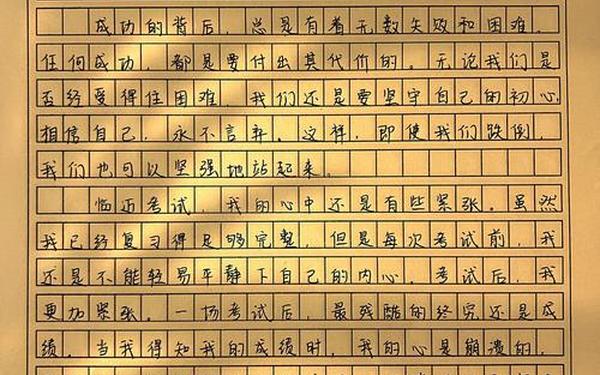 成功的背后，总是有着无数失败和困难。
任何成功，都是要付出其代价的。无论我们是
否经受得住困难，我们还是要坚守自己的初心，
相信自己，永不言弃。这样，即使我们跌倒，
我们也可以坚强地站起来。
临近考试，我的心中还是有些紧张。虽然
我已经复习得足够完整，但是每次考试前，我
还是不能轻易平静下自己的内心。考试后，我
更加紧张。一场考试后，最残酷的终究还是成
绩。当我得知我的成绩时，我的心是崩溃的。